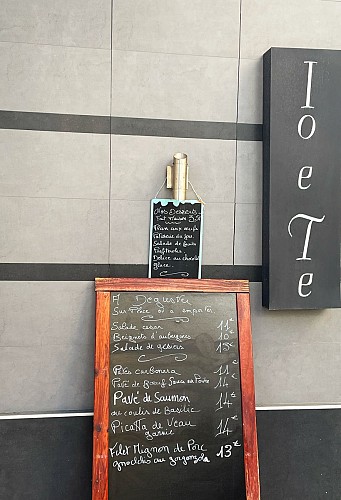 Io e Te
Nos Desserts
Tout Maison
Flan aux œufs
Patisserie du jour
Salade de fruits
Profiteroles
Délice au chocolat
glace
A Déguster
Sur Place ou à emporter
Salade cesar 11€
Beignets d'aubergines 10€
Salade de gésiers 13€
Pâtes carbonara 11€
Pavé de Boeuf Sauce au Poivre 14€
Pavé de Saumon
au coulis de Basilic 14€
Picatta de Veau 14€
garnie
Filet Mignon de Porc 13€
gnocchis au gorgonzola